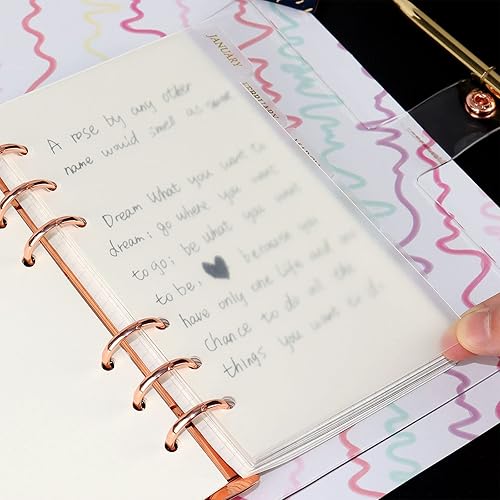 JANUARY
A rose by any other
name would smell as some
Dream What you want to
dream; go where you want
to go; be what you want
to be, because you
have only one life and one
chance to do all the
things you want to do.